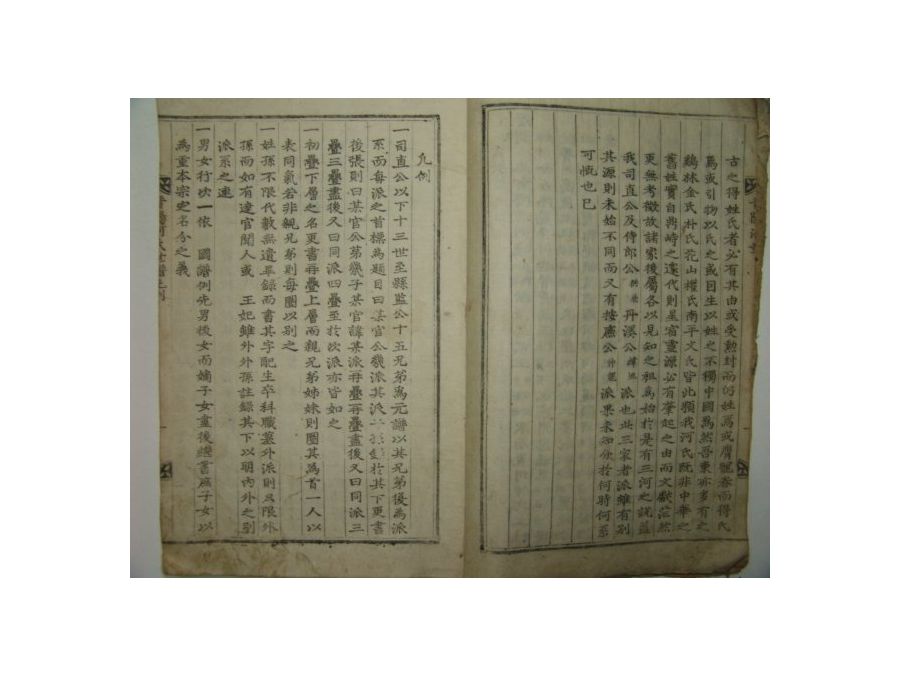 古之得姓氏者必有其由或受勳封而仍姓焉或膺寵眷而得氏
焉或引物以氏之或因生以姓之不獨中國爲然吾東亦多有之
鷄林金氏朴氏花山權氏南平文氏皆此類我河氏旣非中華之
舊姓實自典時之遠代則星宿靈源必有肇起之由而文獻茫然
更無考徵故諸家後屬各以見知之祖爲始於是有三河之說蓋
我司直公及侍郎公 丹溪公 派也此三家者派雖有別
其源則未始不同而又有按廉公 派果未知分於何時何系
可慨也已
凡例
一司直公以下十三世至縣監公十五兄弟爲元譜以其兄弟後爲派
系而每派之首標爲題目曰某官公幾派其派子孫於其下更書
後張則曰某官公第幾子某官諱某派再疊再疊盡後又曰同派三
疊三疊盡後又曰同派四疊至於次派亦皆如之
一初疊下層之名更書再疊上層而親兄弟姊妹則圈其爲首一人以
表同氣若非親兄弟則每圈以別之
一姓孫不限代數無遺畢錄而書其字配生卒科職墓外派則只限外
孫而如有達官聞人或 王妃雖外外孫註錄其下以明內外之別
派系之速
一男女行次一依 國譜例先男後女而嫡子女盡後繼書庶子女以
爲重本宗定名分之義